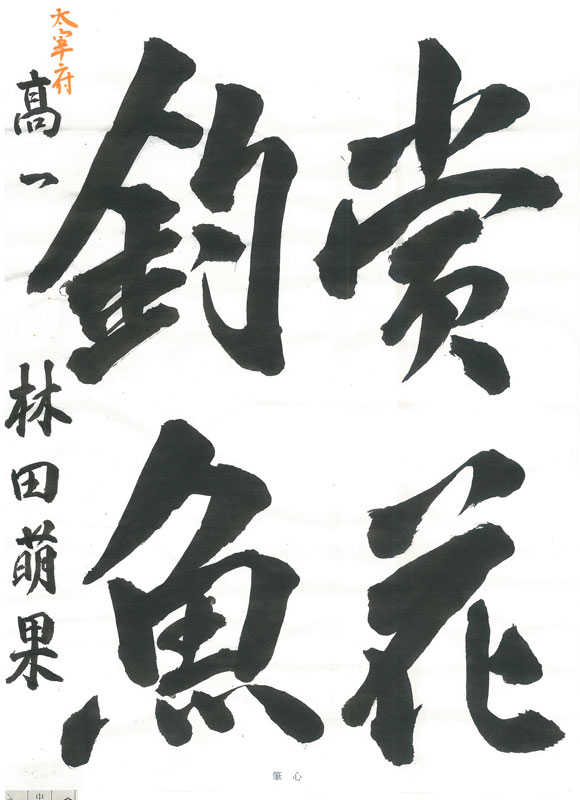 賞花
釣魚
太宰府
高一 林田萌果
心筆
中